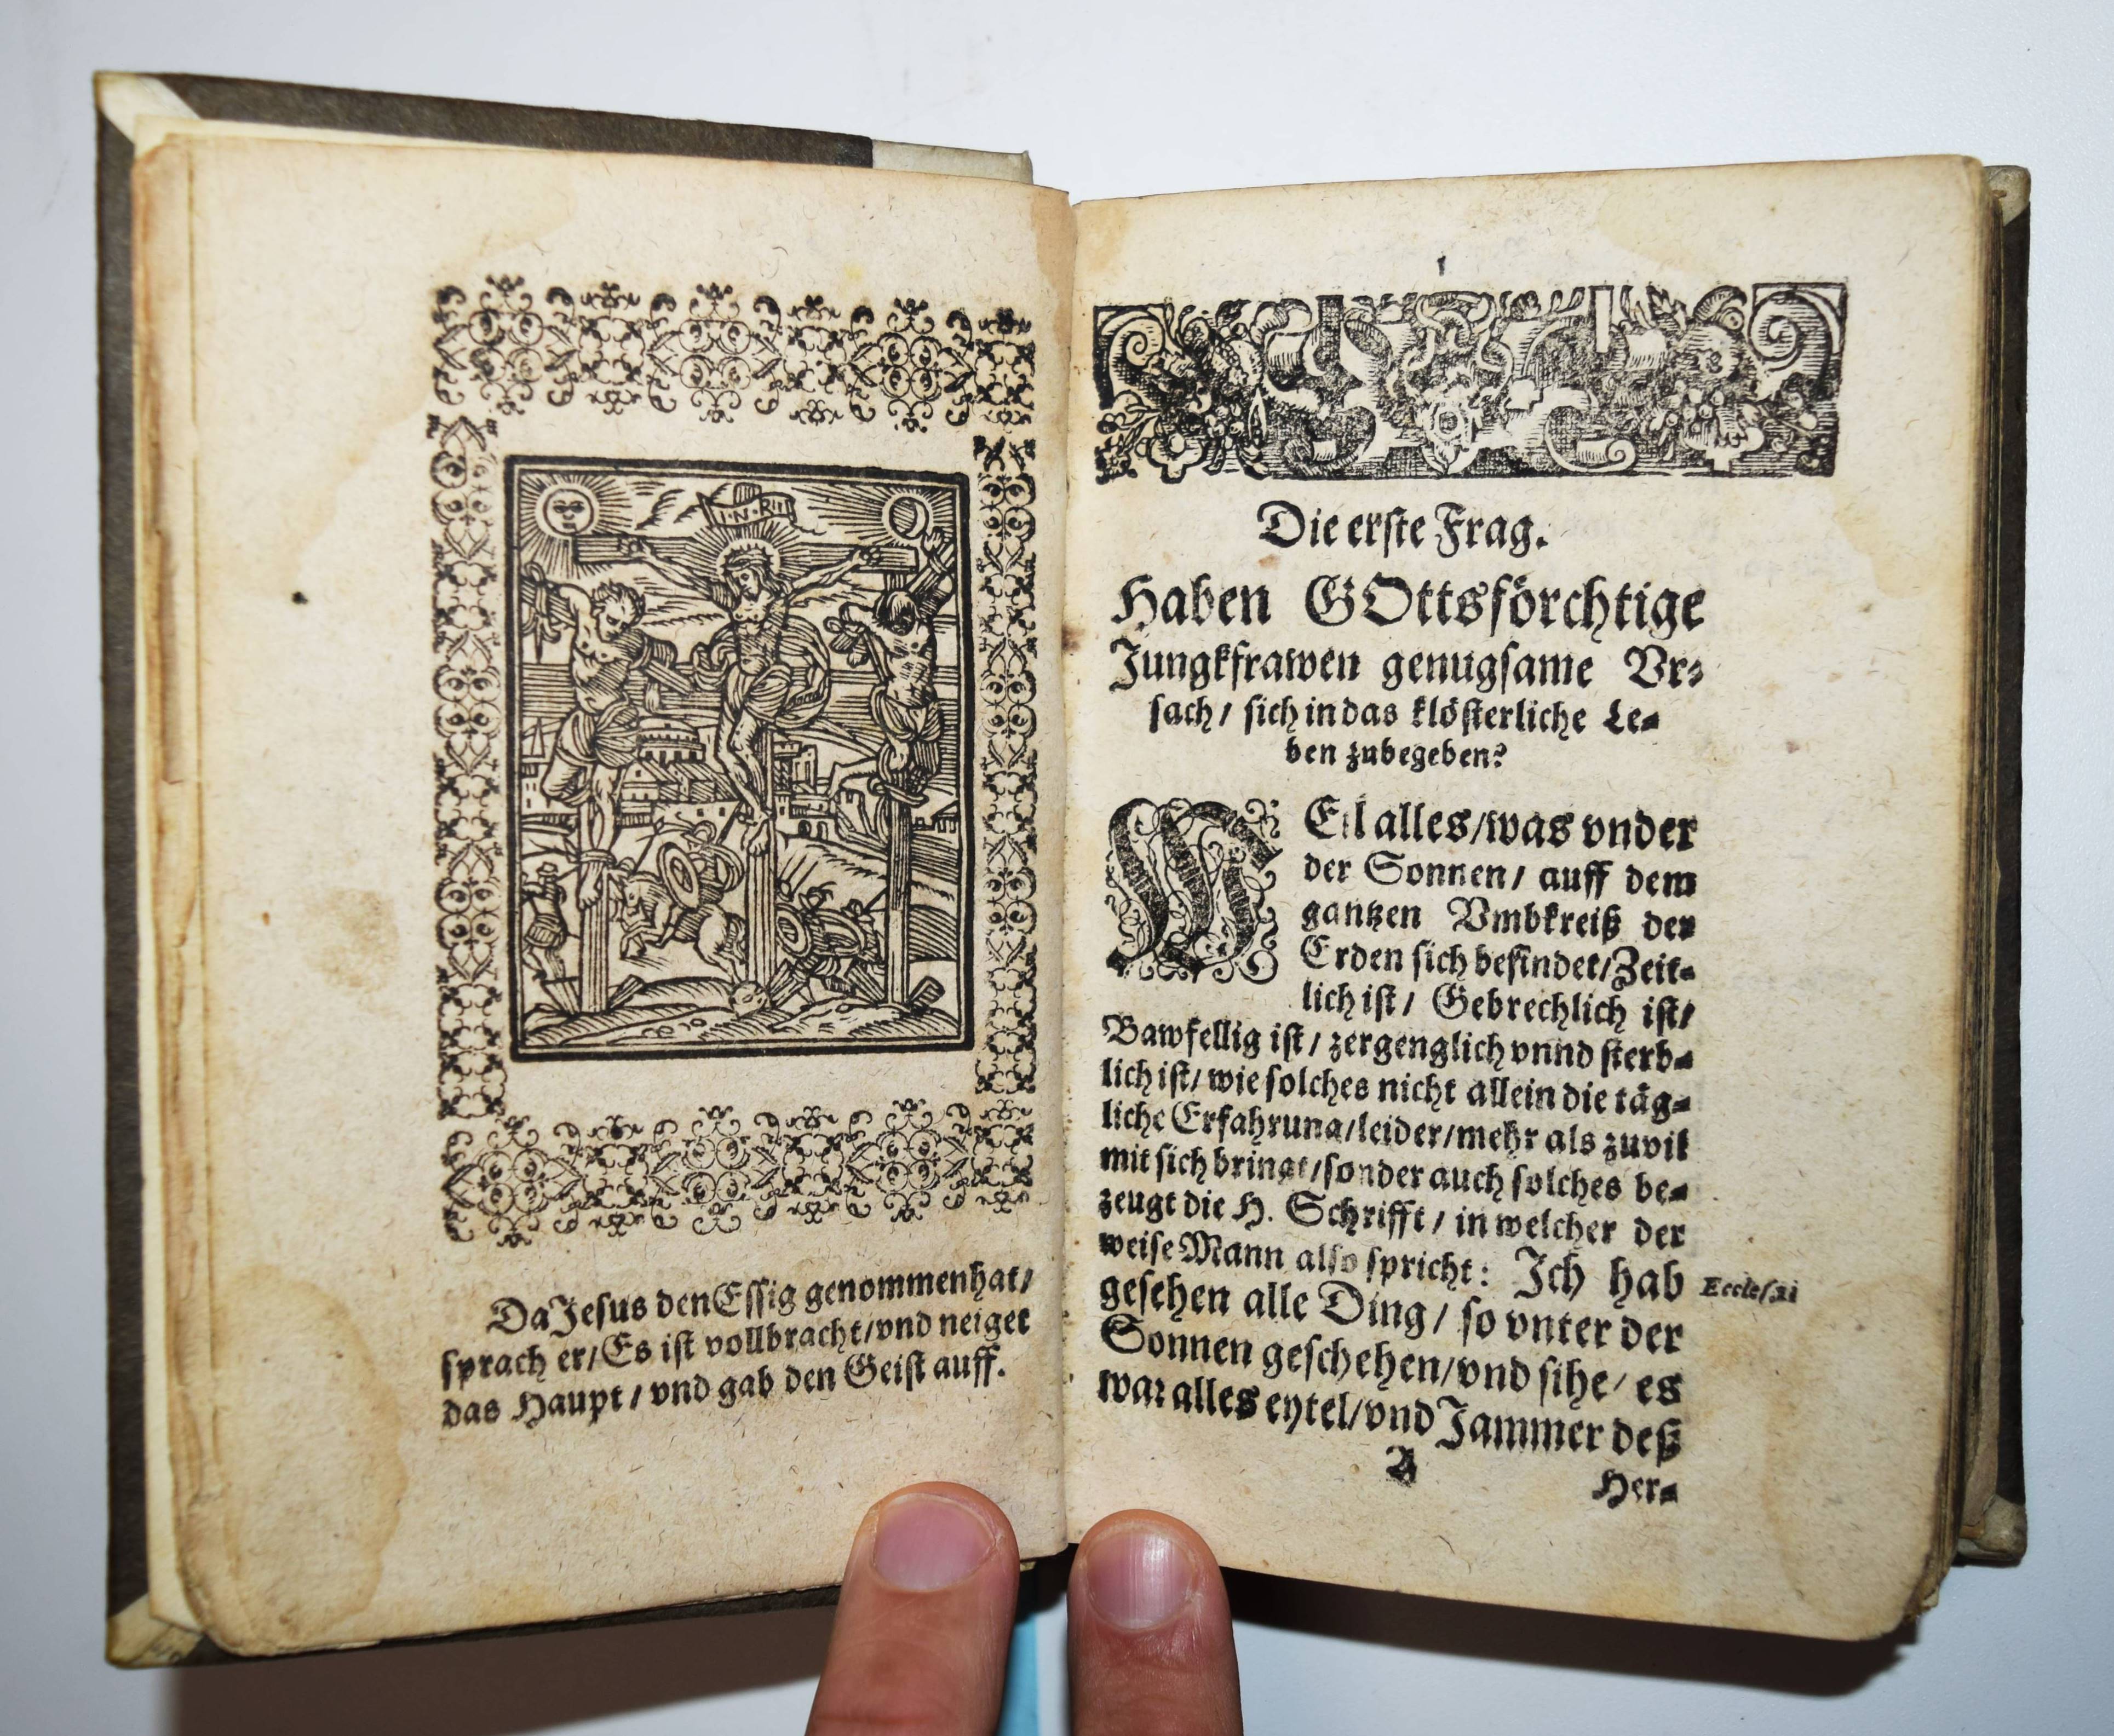 I·N·RI
Da Jesus den Essig genommen hat/
sprach er/Es ist vollbracht/vnd neiget
das Haupt/vnd gab den Geist auff.
1
Die erste Frag.
Haben GOttsförchtige
Jungkfrawen genugsame Vr-
sach/ sich in das klösterliche Le-
ben zubegeben?
WEil alles/was vnder
der Sonnen/ auff dem
gantzen Vmbkreiß der
Erden sich befindet/Zeit-
lich ist/ Gebrechlich ist/
Bawfellig ist/ zergenglich vnnd sterb-
lich ist/ wie solches nicht allein die täg-
liche Erfahrung/leider/mehr als zuvil
mit sich bringt/sonder auch solches be-
zeugt die H. Schrifft/ in welcher der
weise Mann also spricht: Ich hab
gesehen alle Ding/ so vnter der
Sonnen geschehen/vnd sihe/ es
war alles eytel/vnd Jammer deß
A
Her-